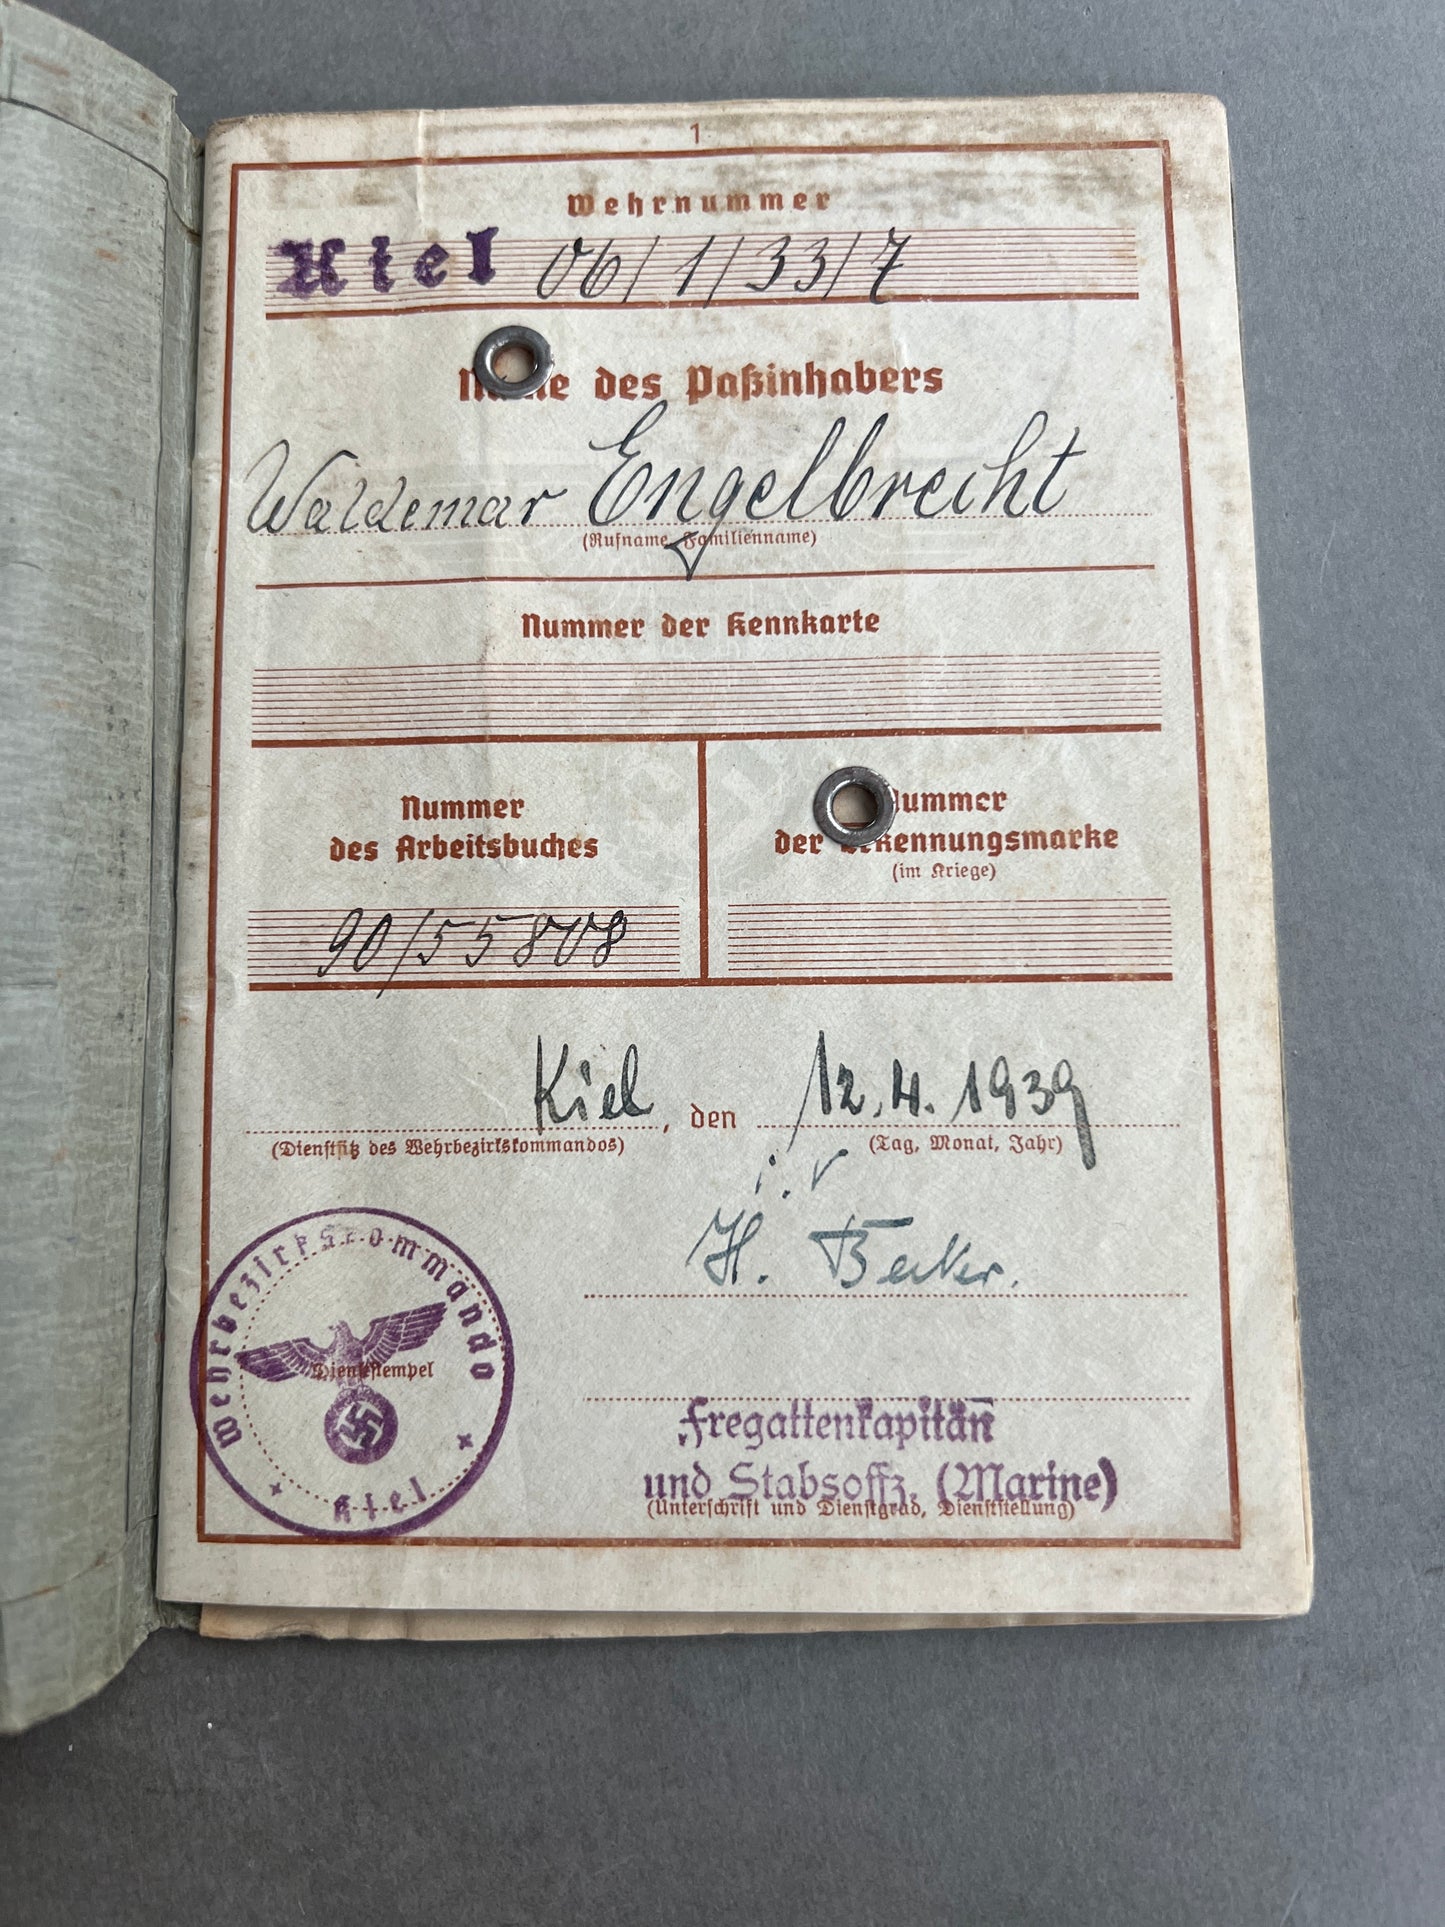 1
Wehrnummer
Kiel 06/1/33/7
Name des Paßinhabers
Waldemar Engelbrecht
(Rufname, Familienname)
Nummer der Kennkarte
Nummer
des Arbeitsbuches
90/55808
Nummer
der Erkennungsmarke
(im Kriege)
Kiel, den 12.4.1939
(Dienstsitz des Wehrbezirkskommandos) (Tag, Monat, Jahr)
i. V
H. Becker.
Wehrbezirkskommando
Dienststempel
Kiel
Fregattenkapitän
und Stabsoffz. (Marine)
(Unterschrift und Dienstgrad, Dienststellung)